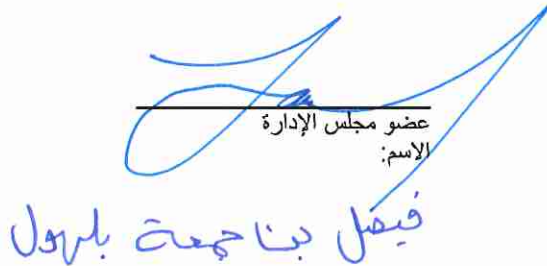 عضو مجلس الإدارة
الاسم:
فيصل بن جمعة بلهول